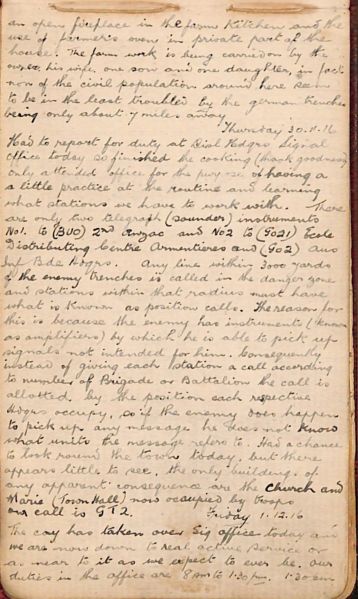 an open fireplace in the farm kitchen and the
use of farmers oven in private part of the
house. The farm work is being carried on by the
owner, his wife, one son and one daughter, in fact
non of the civil population around here seem
to be in the least troubled by the german trenches
being only about 7 miles away
Thursday 30.11.16
Had to report for duty at Divl Hdqrs Signal
Office today so finished the cooking (thank goodness)
only attended office for the purpose of having a
a little practice at the routine and learning
what stations we have to work with. There
are only two telegraph (sounder) instruments
No1. to (BUO) 2nd Anzac and No2 to (GO21)
Distributing Centre Armentieres and (GO2) Aus
Inf Bde Hdqrs. Any line within 3000 yards
of the enemy trenches is called in the danger zone
and stations within that radius must have
what is known as position calls. The reason for
this is because the enemy has instruments (known
as amplifiers) by which he is able to pick up
signals not intended for him. Consequently
instead of giving each station a call according
to number of Brigade or Battalion the call is
allotted, by the position each respective
Hdqrs occupy, so if the enemy does happen
to pick up any message he does not know
what units the message refers to. Had a chance
to look round the town today, but there
appears little to see, the only buildings of
any apparent consequence are the church and
Marie (Town Hall) now occupied by troops
our call is GT2. Friday 1.12.16
The coy has taken over Sig office today and
we are now down to real active service or
as near to it as we expect to ever be. Our
duties in the office are 8 pm to 1.30 pm. 1.30 am